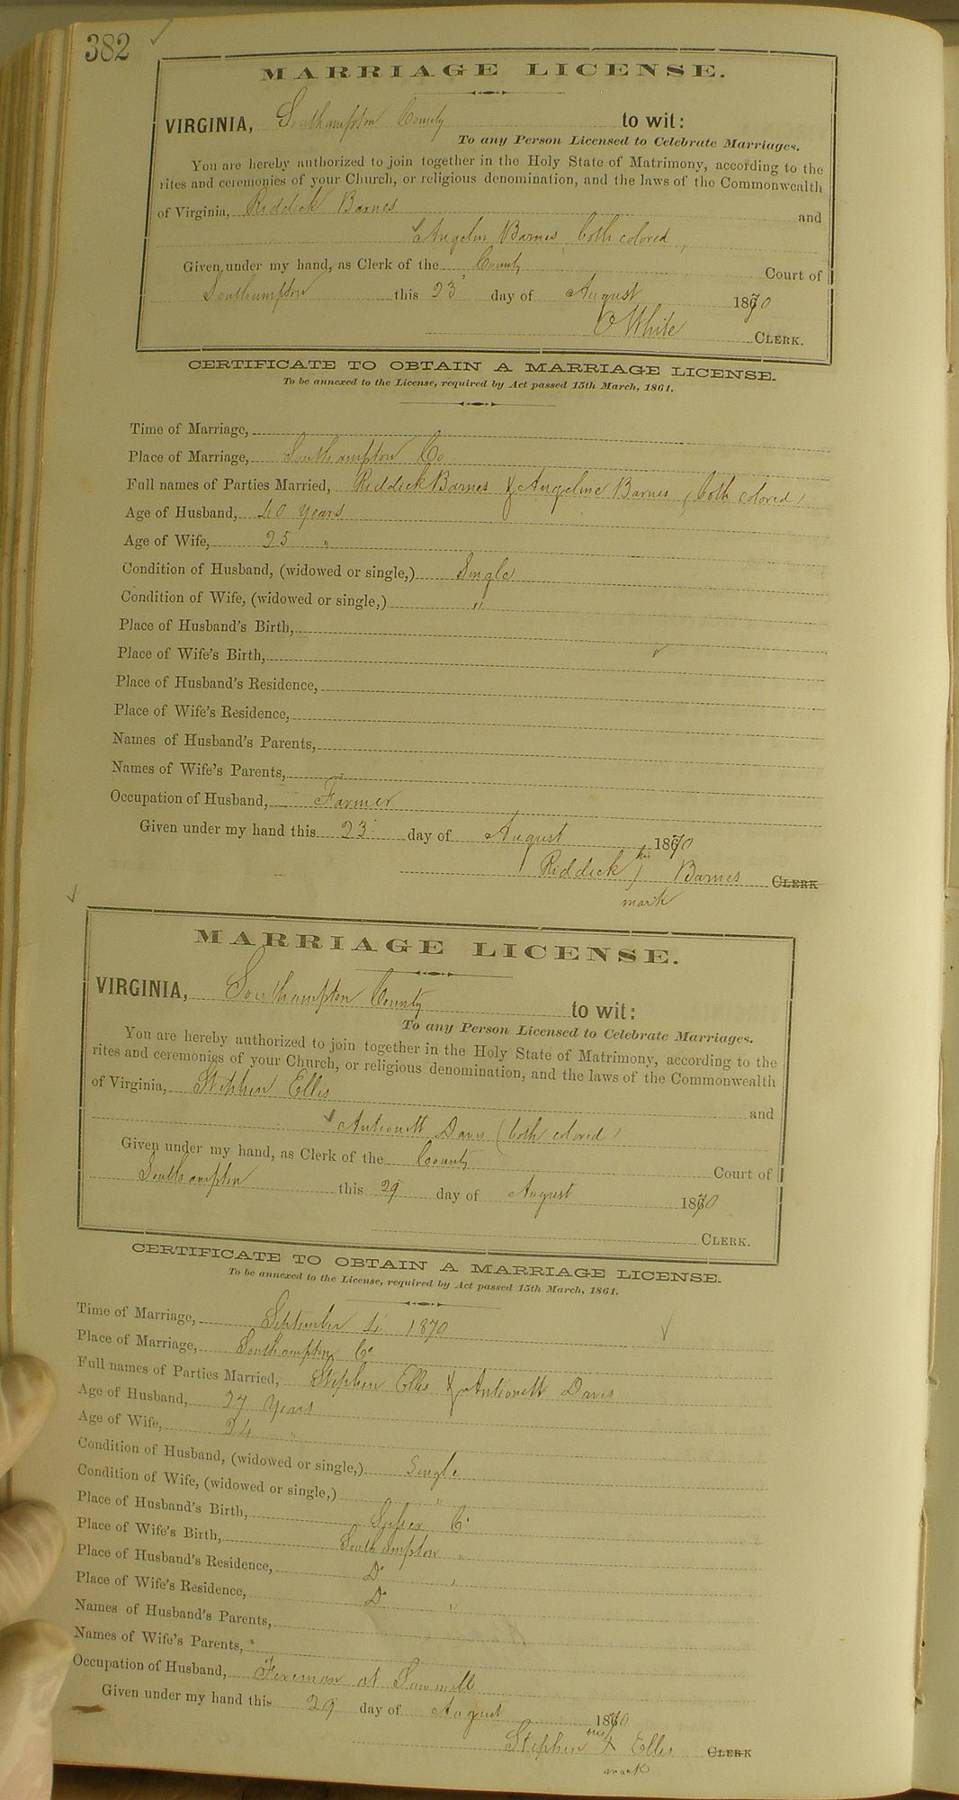 382
MARRIAGE LICENSE.
VIRGINIA, Southampton County to wit:
To any Person Licensed to Celebrate Marriages.
You are hereby authorized to join together in the Holy State of Matrimony, according to the
rites and ceremonies of your Church, or religious denomination, and the laws of the Commonwealth
of Virginia, Riddick Barnes and
Angelin Barnes both colored
Given under my hand, as Clerk of the County Court of
Southampton this 23 day of August 1870
White CLERK.
CERTIFICATE TO OBTAIN A MARRIAGE LICENSE.
To be annexed to the License, required by Act passed 15th March, 1861.
Time of Marriage,
Place of Marriage, Southampton Co
Full names of Parties Married, Riddick Barnes & Angeline Barnes (both colored)
Age of Husband, 40 years
Age of Wife, 25 "
Condition of Husband, (widowed or single,) Single
Condition of Wife, (widowed or single,) "
Place of Husband's Birth,
Place of Wife's Birth,
Place of Husband's Residence,
Place of Wife's Residence,
Names of Husband's Parents,
Names of Wife's Parents,
Occupation of Husband, Farmer
Given under my hand this 23 day of August 1870
Riddick his Barnes CLERK
mark
MARRIAGE LICENSE.
VIRGINIA, Southampton County to wit:
To any Person Licensed to Celebrate Marriages.
You are hereby authorized to join together in the Holy State of Matrimony, according to the
rites and ceremonies of your Church, or religious denomination, and the laws of the Commonwealth
of Virginia, Stephen Ellis and
Antionett Davis (both colored)
Given under my hand, as Clerk of the County Court of
Southampton this 29 day of August 1870
CLERK.
CERTIFICATE TO OBTAIN A MARRIAGE LICENSE.
To be annexed to the License, required by Act passed 15th March, 1861.
Time of Marriage, September 1870
Place of Marriage, Southampton Co
Full names of Parties Married, Stephen Ellis & Antionett Davis
Age of Husband, 27 Years
Age of Wife, 24 "
Condition of Husband, (widowed or single,) Single
Condition of Wife, (widowed or single,) "
Place of Husband's Birth, Sussex Co
Place of Wife's Birth, Southampton "
Place of Husband's Residence, Do "
Place of Wife's Residence, Do "
Names of Husband's Parents,
Names of Wife's Parents,
Occupation of Husband, Fireman at Sawmill
Given under my hand this 29 day of August 1870
Stephen X Ellis CLERK
mark